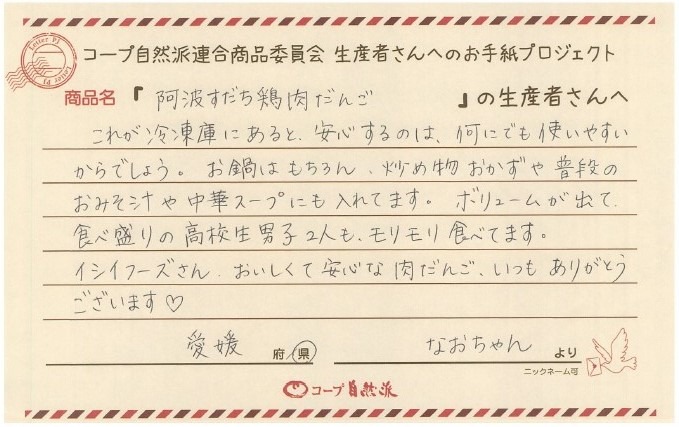 Letter PJ
Letter PJ
コープ自然派連合商品委員会 生産者さんへのお手紙プロジェクト
商品名『 阿波すだち鶏肉だんご 』の生産者さんへ
これが冷凍庫にあると、安心するのは、何にでも使いやすい
からでしょう。お鍋はもちろん、炒め物おかずや普段の
おみそ汁や中華スープにも入れてます。ボリュームが出て、
食べ盛りの高校生男子2人も、モリモリ食べてます。
イシイフーズさん、おいしくて安心な肉だんご、いつもありがとう
ございます♡
愛媛 府/県 なおちゃん より
ニックネーム可
コープ自然派